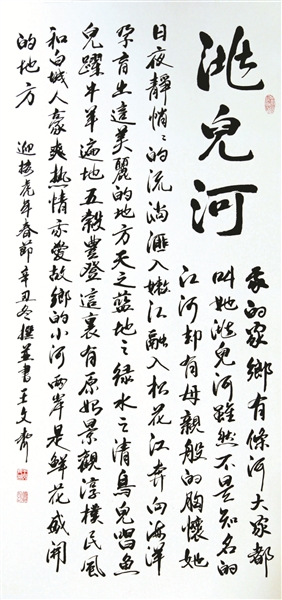 洮兒河
我的家鄉有條河大家都
叫她洮兒河雖然不是知名的
江河却有母親般的胸懷她
日夜靜悄〻的流淌滙入嫩江融入松花江奔向海洋
孕育生這美麗的地方天之藍地之緑水之清鳥兒唱魚
兒躍牛羊遍地五穀豐登這裏有原始景觀淳樸民風
和白城人豪爽热情亦愛故鄉的小河兩岸是鮮花盛開
的地方
迎接虎年春節辛丑冬撰並書王文